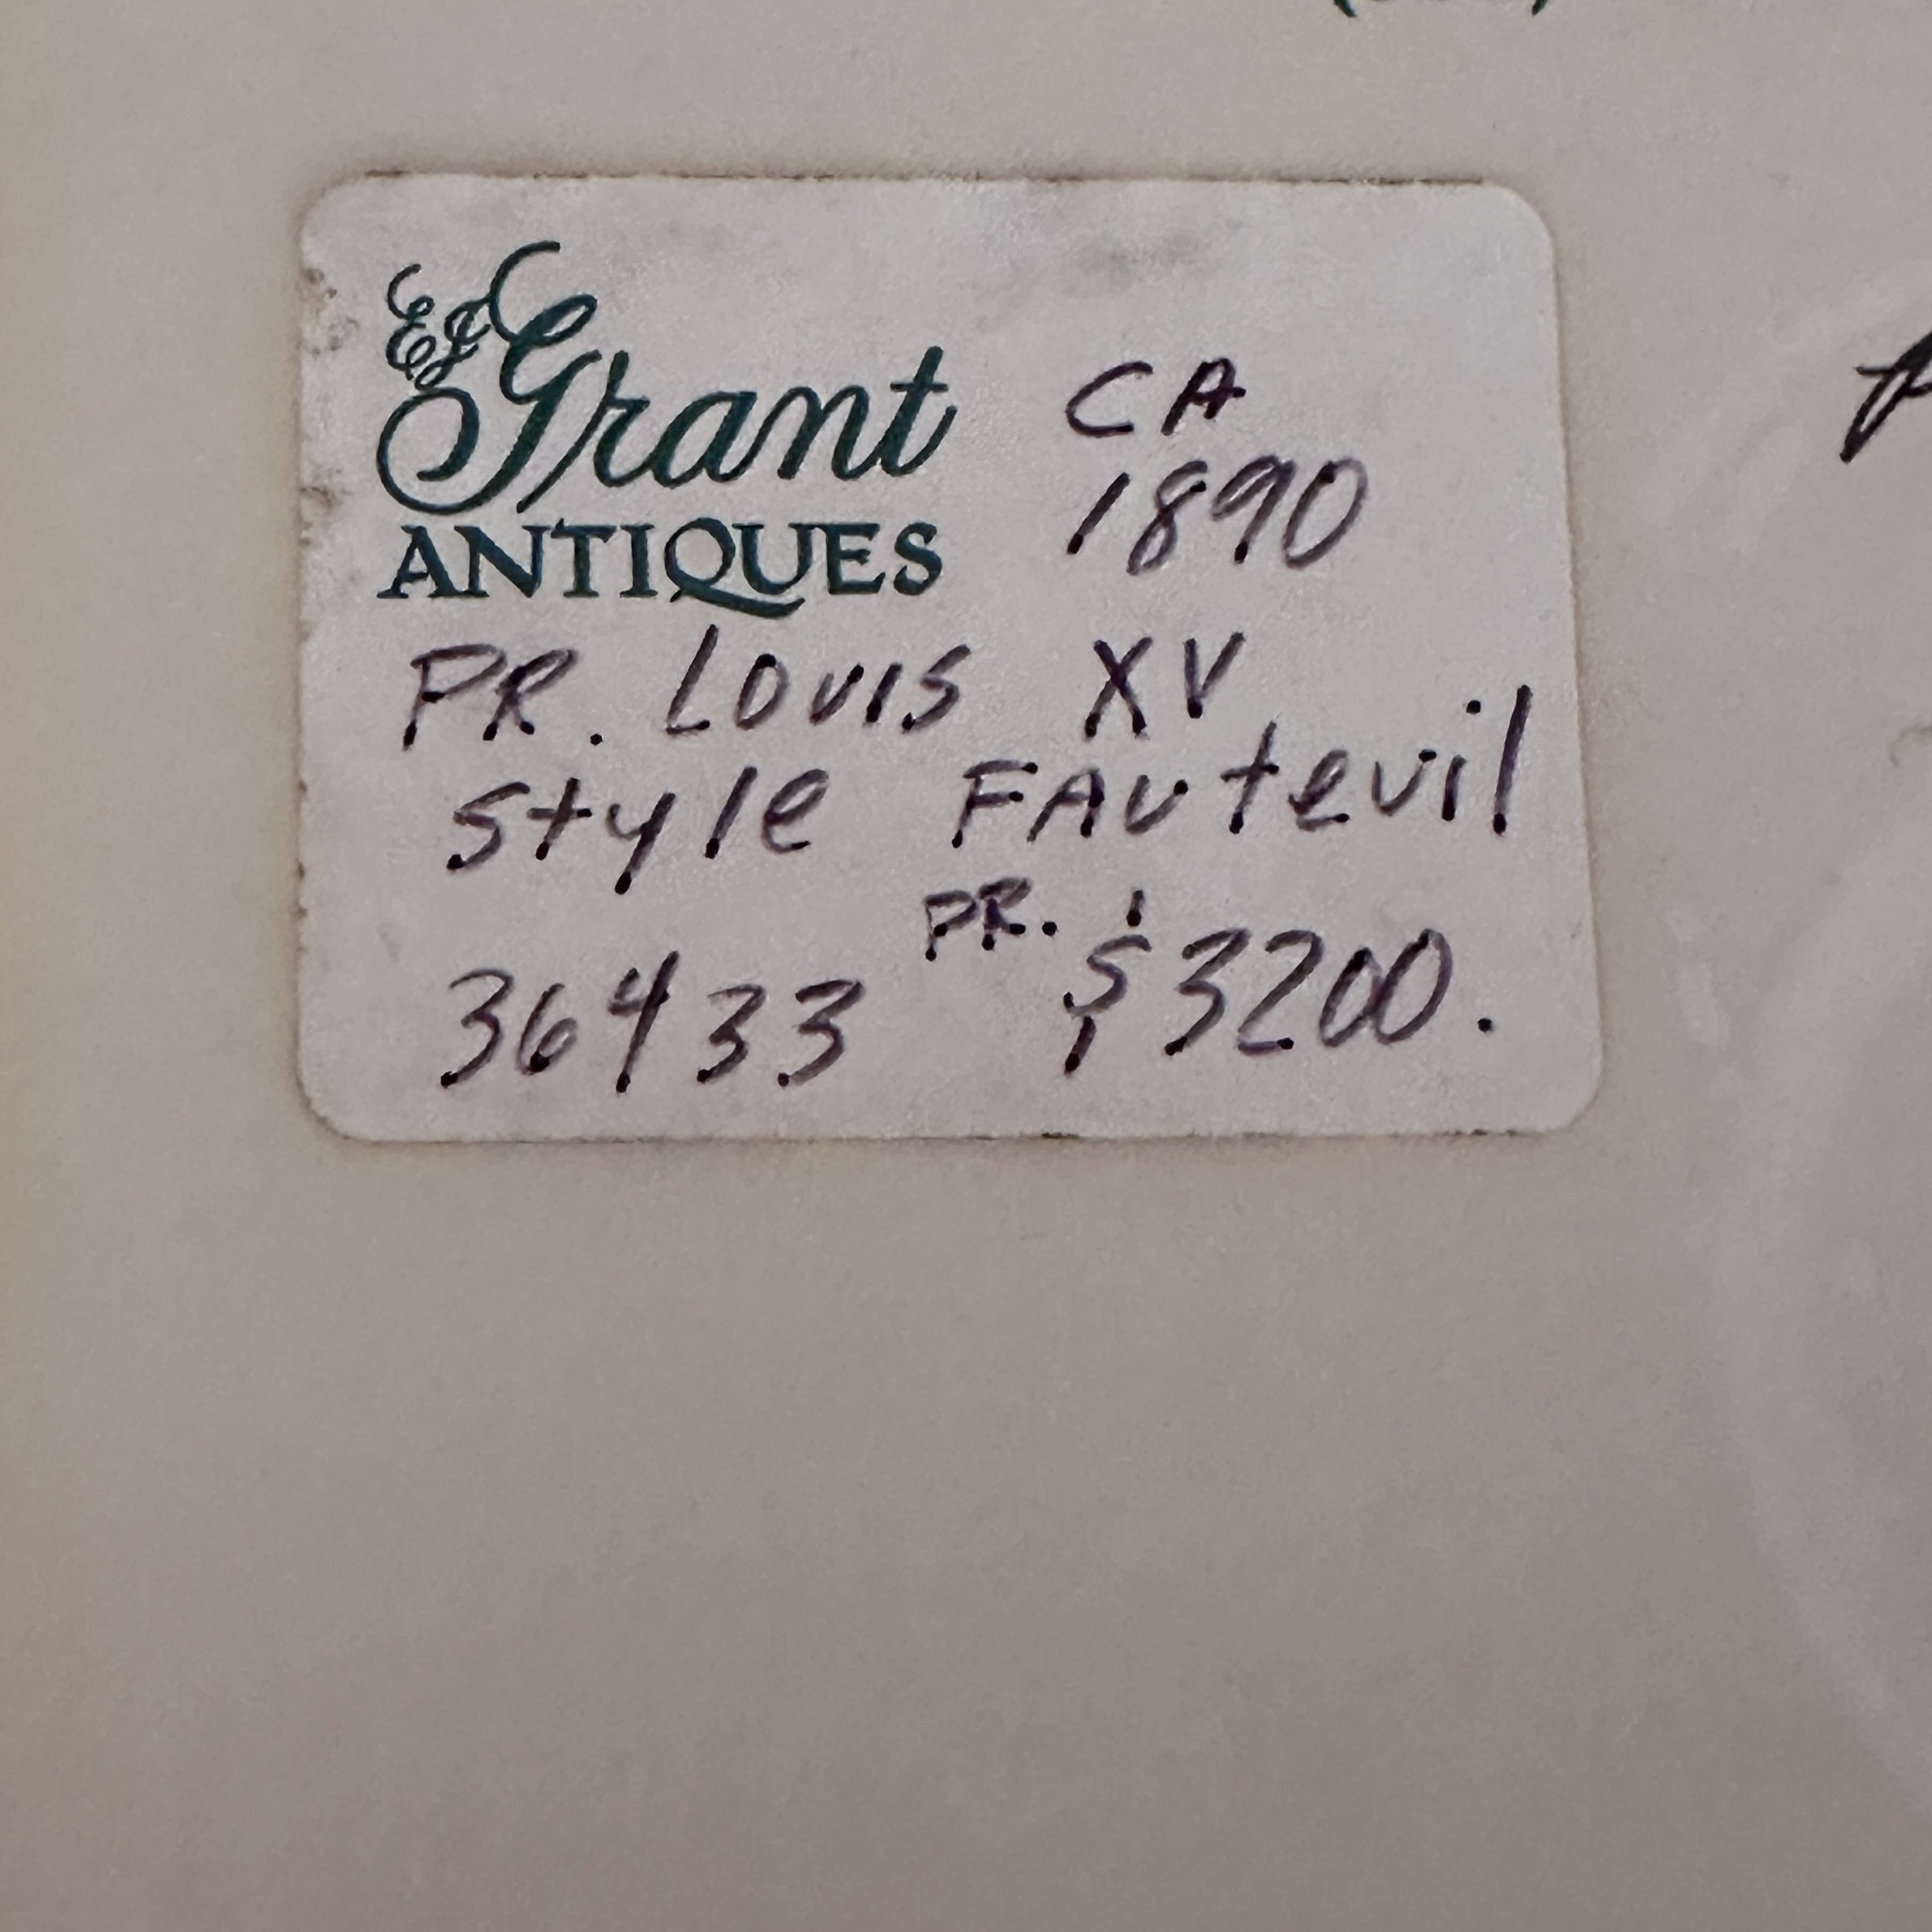 EJ Grant
ANTIQUES
CA
1890
PR. LOUIS XV
style FAuteuil
PR.
36433 $3200.